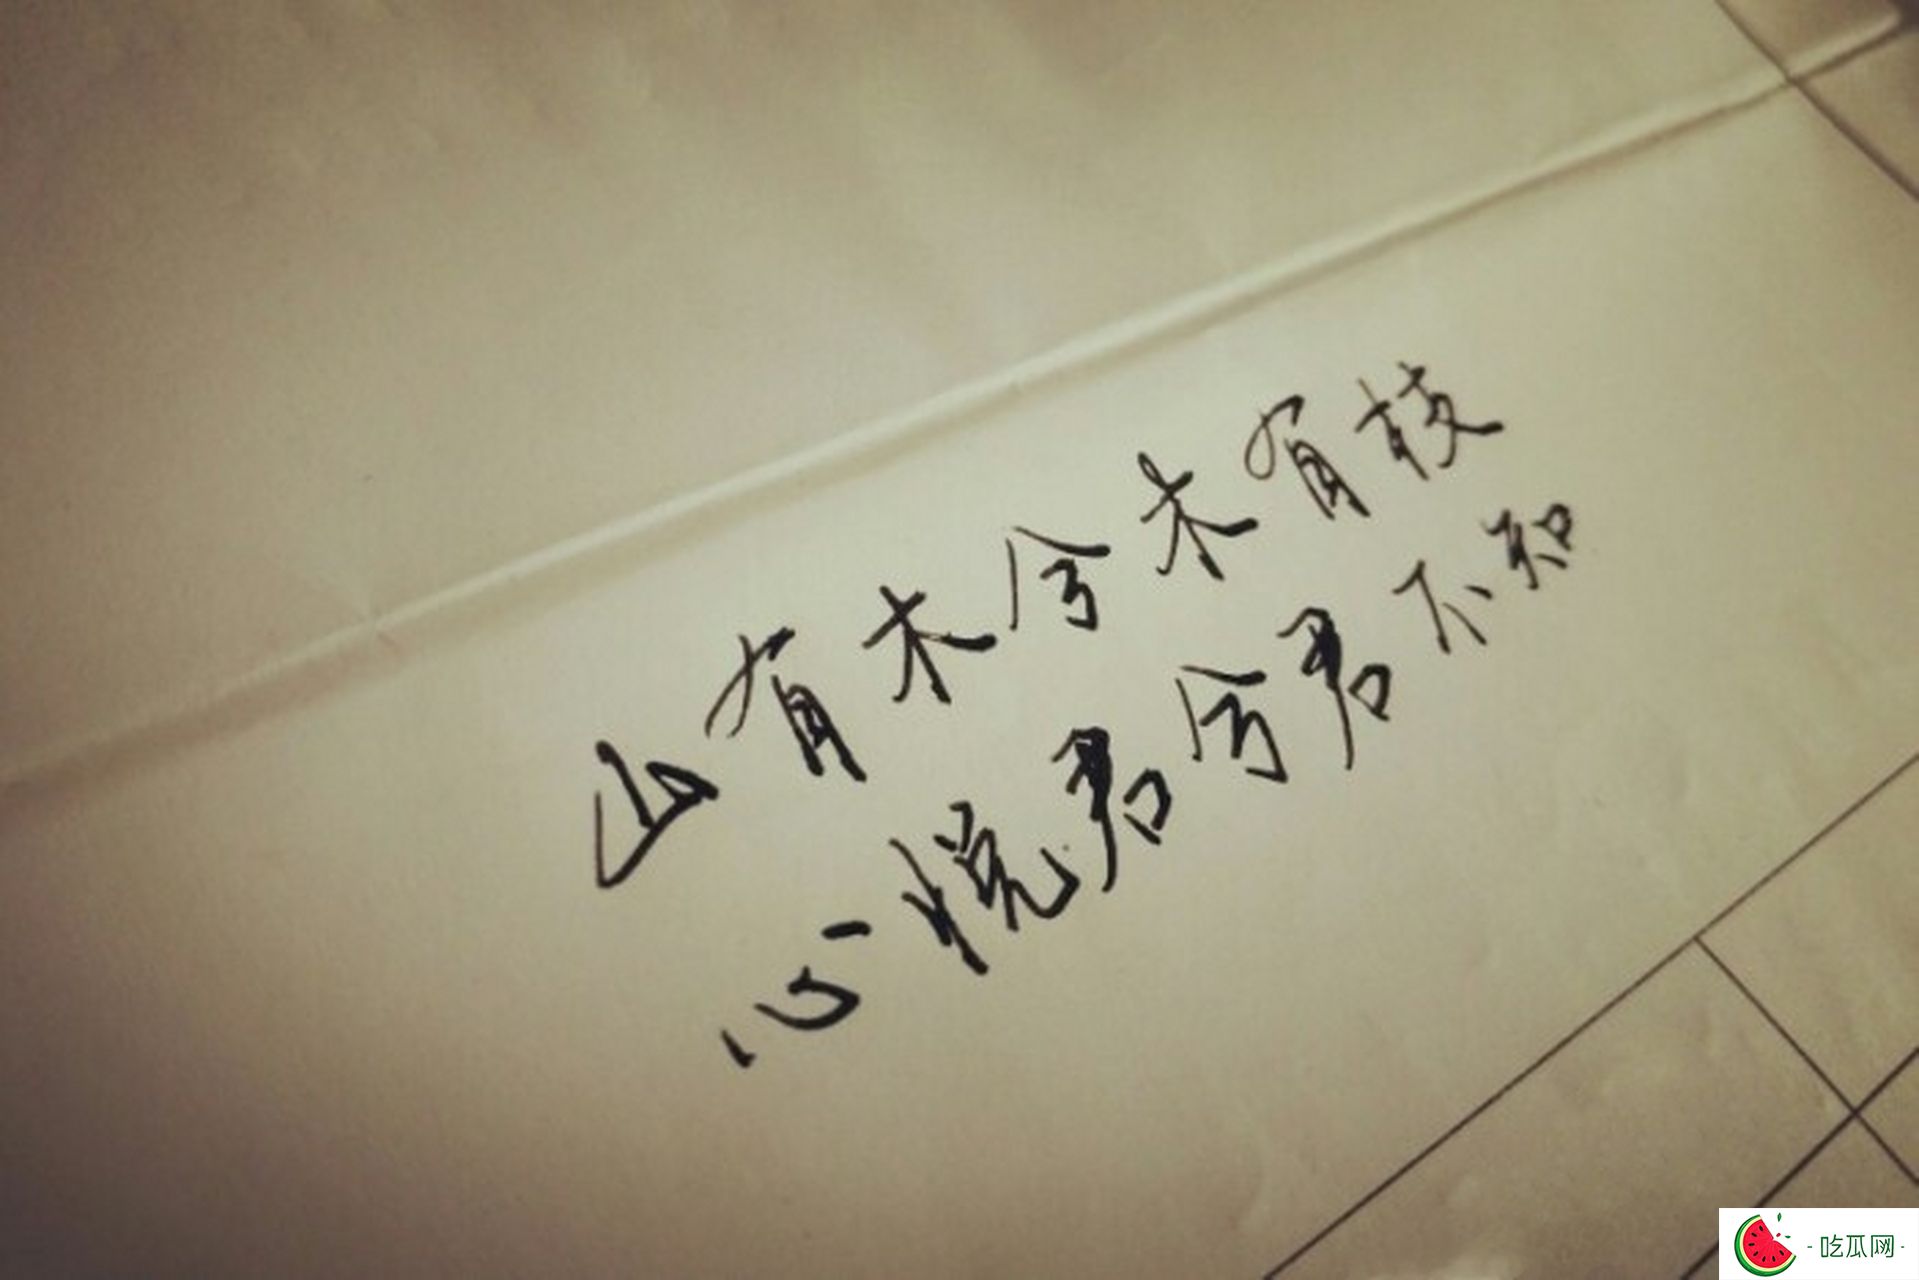 山有木兮木有枝
心悦君兮君不知
·吃瓜网·